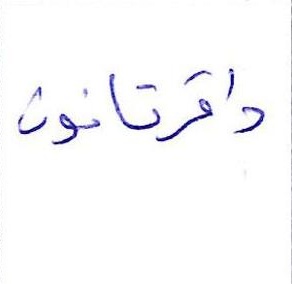 داقرتانون